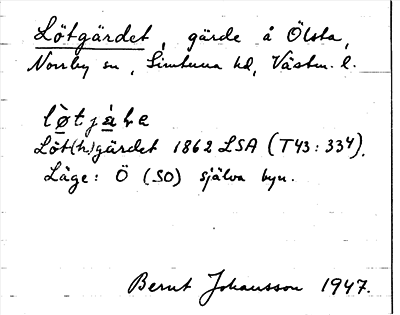 Lötgärdet, gärde å Ölsta,
Norrby sn, Simtuna hd, Västm. l.
Löt(h)gärdet 1862 LSA (T43:334).
Läge: Ö (SO) själva byn.
Bernt Johansson 1947.